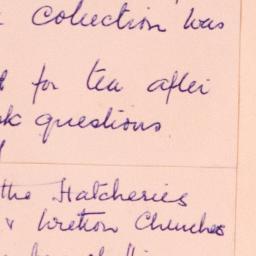 collection was
for tea after
questions
the Hatcheries
& Wretton Churches